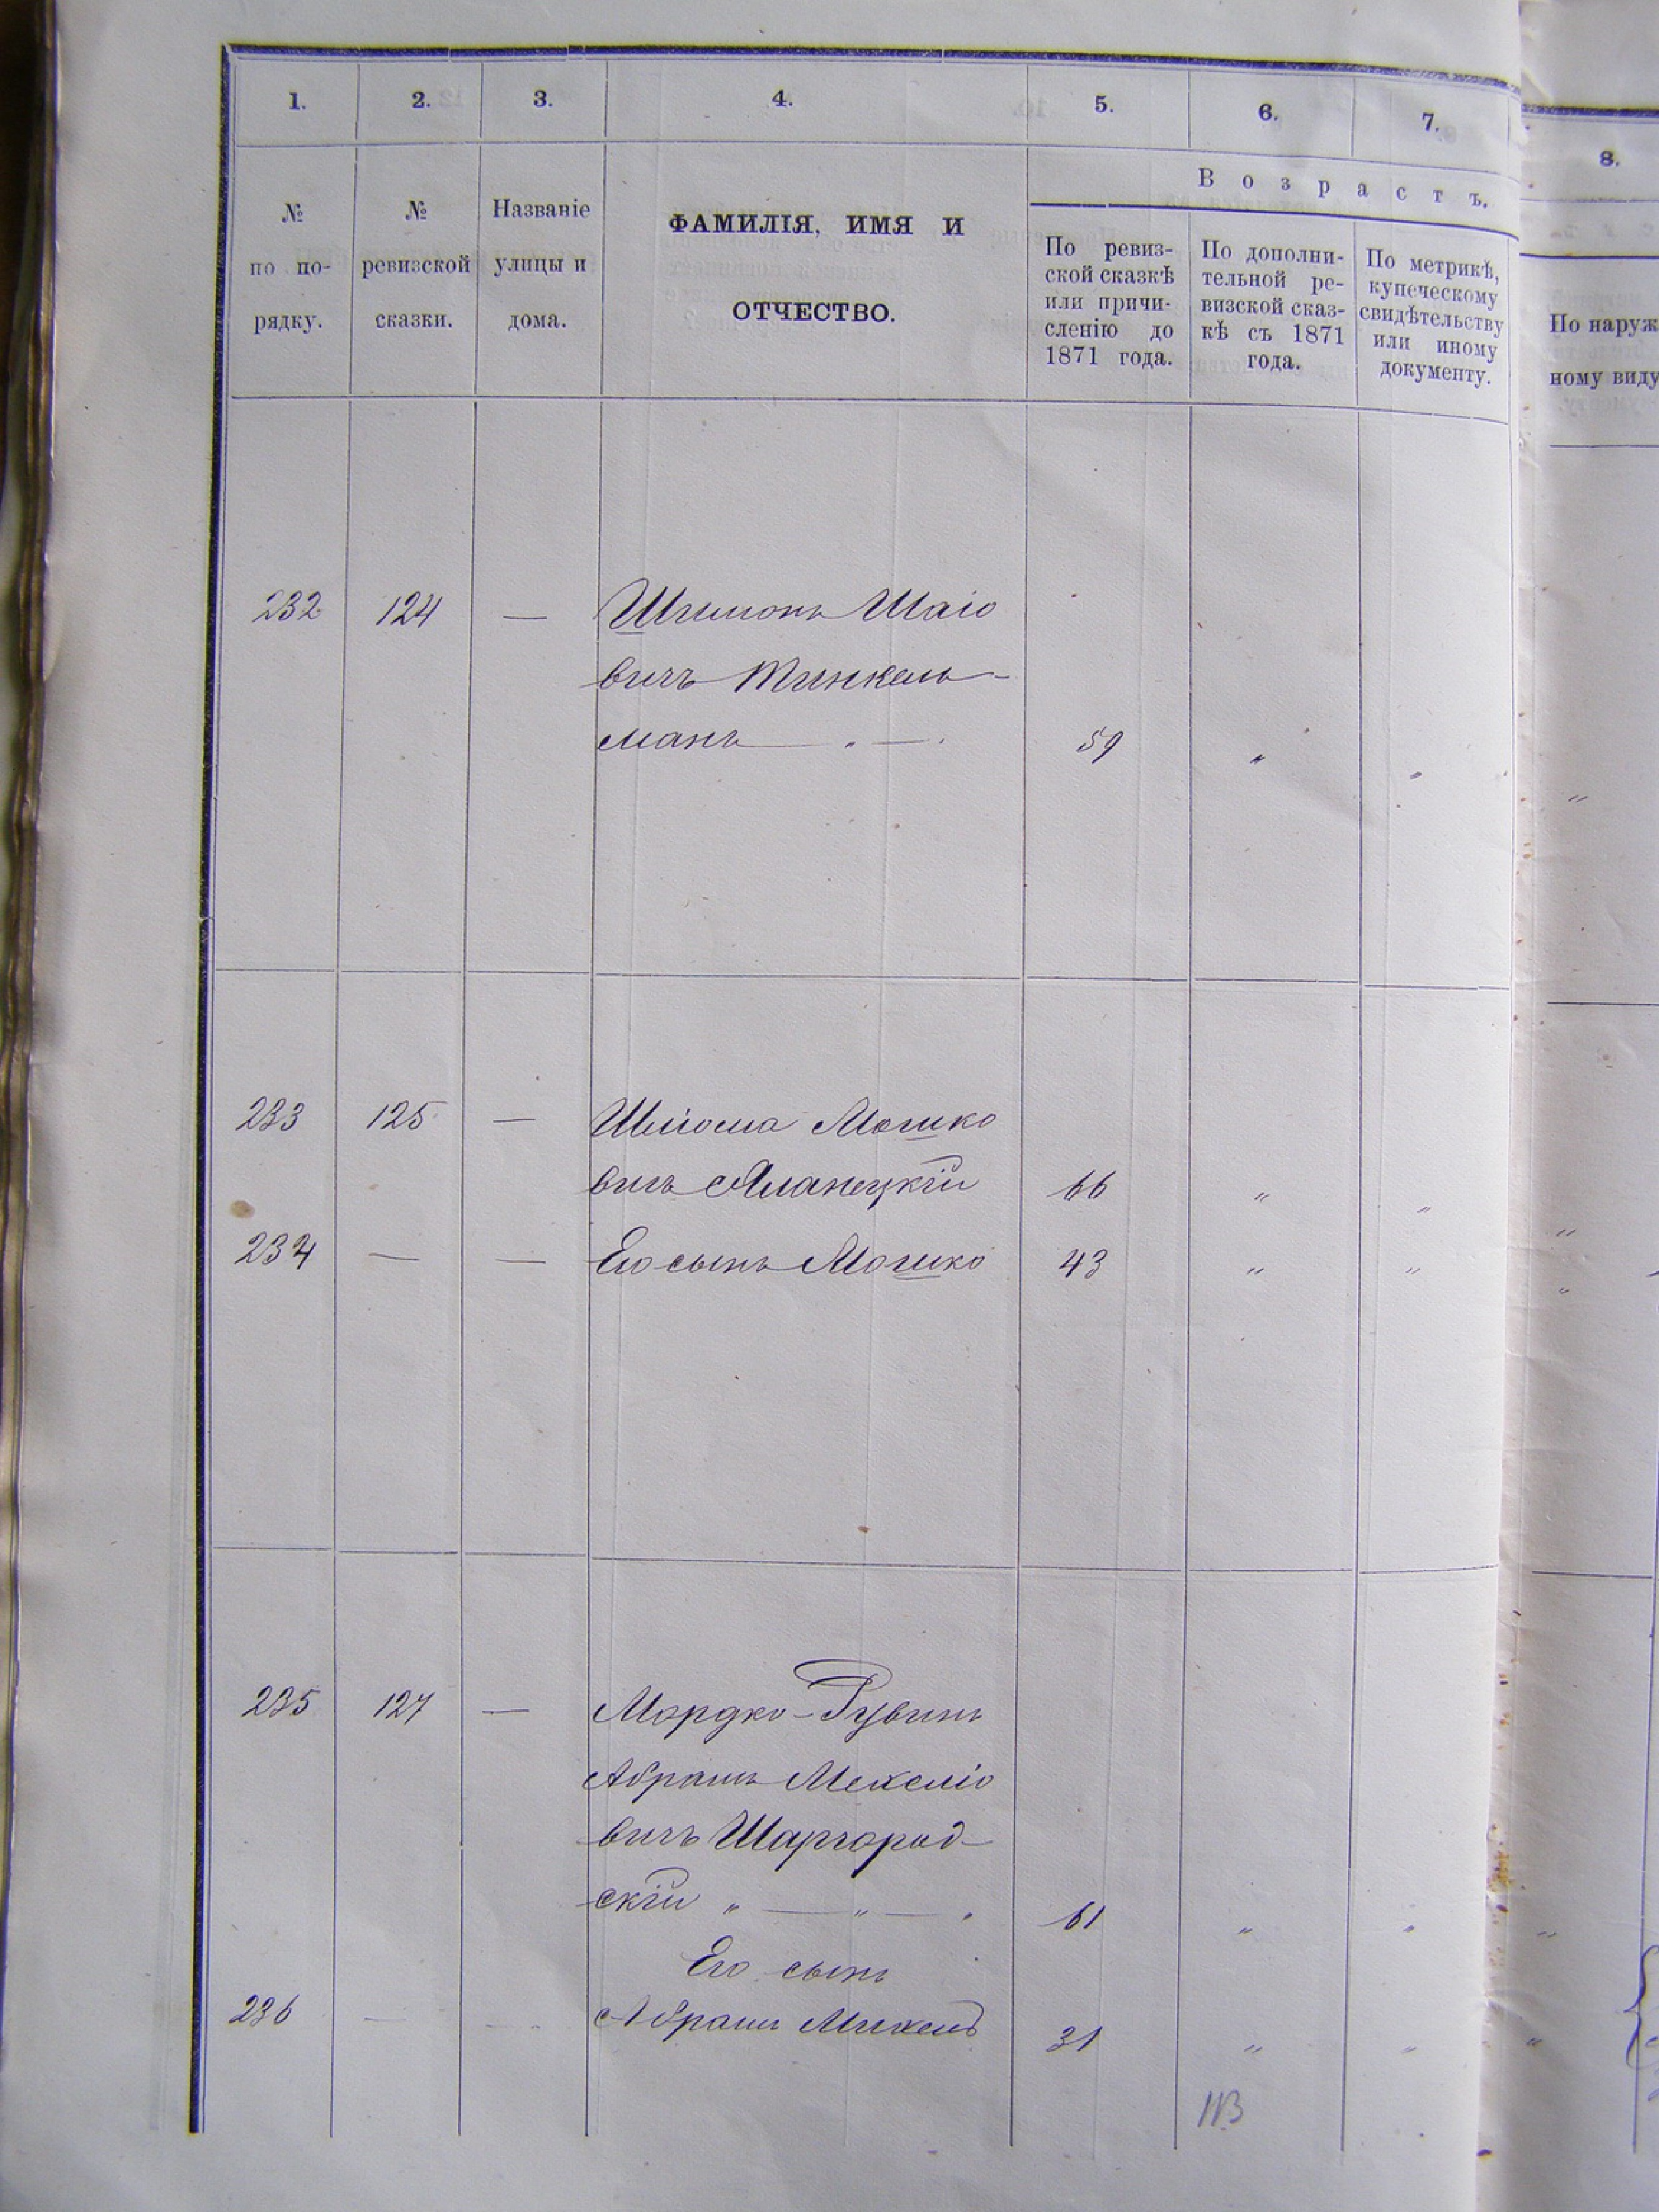 1. 2. 3. 4. 5. 6. 7. 8.
№ по по- рядку.
№ ревизской сказки.
Названіе улицы и дома.
ФАМИЛІЯ, ИМЯ И
ОТЧЕСТВО.
Возрастъ.
По ревиз-
ской сказкѣ
или причи-
сленію до
1871 года.
По дополни-
тельной ре-
визской сказ-
кѣ съ 1871
года.
По метрикѣ,
купеческому
свидѣтельству
или иному
документу.
По наруж
ному виду
232 124 — Шимонъ Шаіо
вичъ Тинкель-
манъ — " — 59 " " "
233 125 — Шліома Мошко
вичъ Яланецкій 66 " " "
234 — — Его сынъ Мошко 43 " " "
235 127 — Мордко-Рувинъ
Абрамъ Мехеліо
вичъ Шаргород-
скій " — " — " 61 " " "
Его сынъ
236 — — Абрамъ Михель 31 " " "